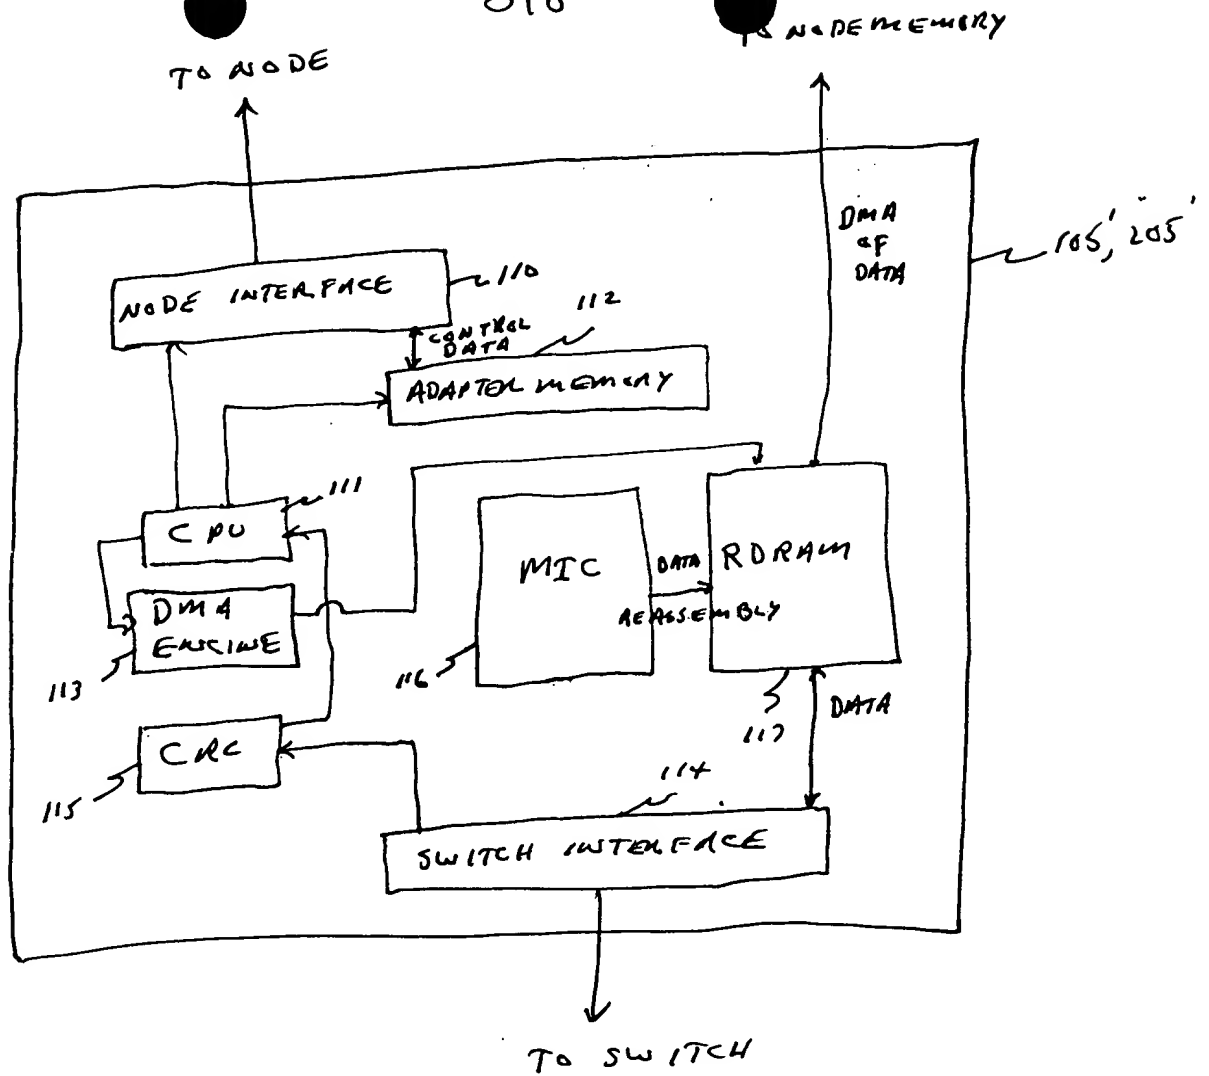 TO NODE
TO NODE MEMORY
DMA
OF
DATA
105', 205'
NODE INTERFACE
110
CONTROL
DATA
112
ADAPTER MEMORY
111
CPU
DMA
ENGINE
113
MIC
116
DATA
REASSEMBLY
RDRAM
117
DATA
CRC
115
114
SWITCH INTERFACE
TO SWITCH